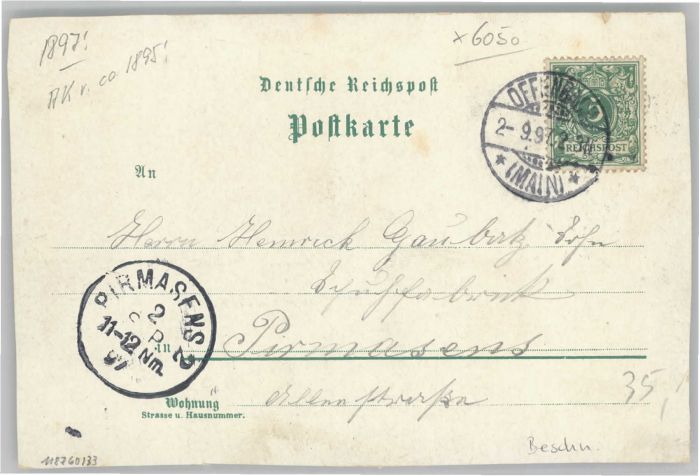 1897!
AK v. ca 1895!
x 6050
Deutsche Reichspost
Postkarte
OFFENBACH
2-9.97. 2-
* (MAIN) *
REICHSPOST
An
Herrn Heinrich Gaubatz Sohn
Schuhfabrik
PIRMASENS 2
2
9 P
11-12 Nm.
97
in Pirmasens
Alleestraße
35,-
Wohnung
Strasse u. Hausnummer.
Beschn.
118760133